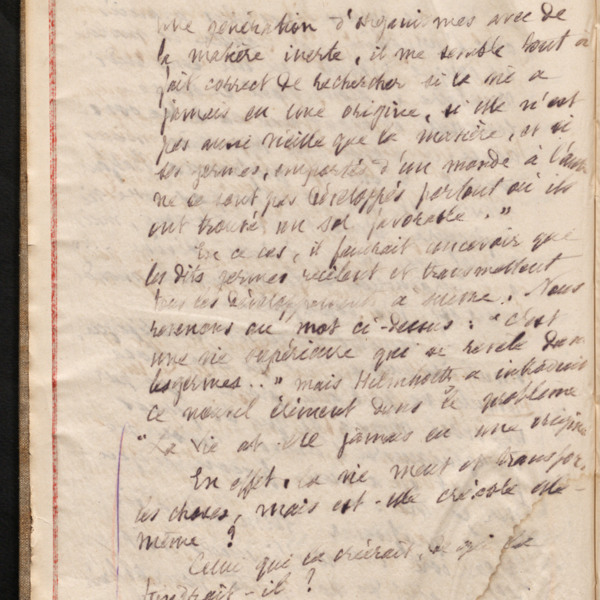 génération d'organismes avec de
la matière inerte, il me semble tout à
fait correct de rechercher si la vie a
jamais eu une origine, si elle n'est
pas aussi vieille que la matière, et si
ses germes, emportés d'un monde à l'autre
ne se sont pas développés partout où ils
ont trouvé un sol favorable. »
En ce cas, il faudrait concevoir que
les dits germes recèlent et transmettent
tous les développements à suivre. Nous
revenons au mot ci-dessus : "c'est
une vie supérieure qui se révèle dans
les germes.. » mais Helmholtz a introduit
ce nouvel élément dans le problème
"La vie a-t-elle jamais eu une origine
En effet, la vie meut et transfor.
les choses, mais est-elle créable elle-
même ?
Celui qui la créerait,
faudrait-il ?